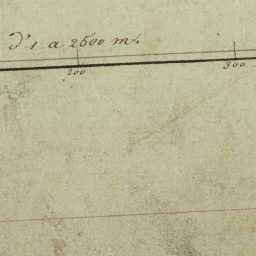 d'1 a 2500 m.
200 300